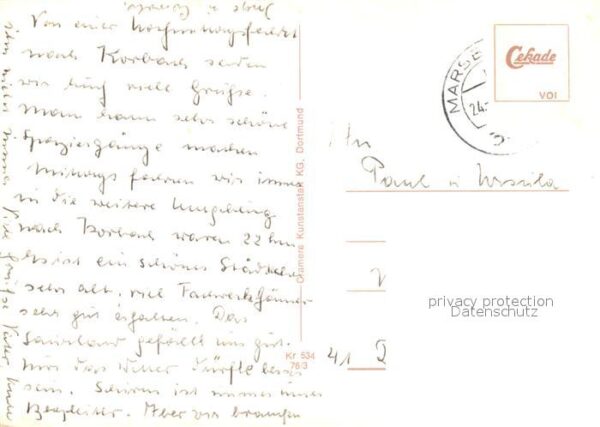 Von einer
nach Korbach senden
wir Euch viele Grüße.
Man kann sehr schöne
Spaziergänge machen
Mittags fahren wir immer
in die weitere Umgebung
nach Korbach waren 22 km
Es ist ein schönes Städtchen
sehr alt, viel Fachwerkhäuser
sehr gut erhalten. Das
Sauerland gefällt uns gut.
Nur das Wetter dürfte besser
sein. Schirm ist unser
Begleiter. Aber wir brauchen
Viele Grüße
Cramers Kunstanstalt KG, Dortmund
Kr 534
76/3
MARSB
24.
Cekade
VOI
An
Paul u Ursula
41
privacy protection
Datenschutz